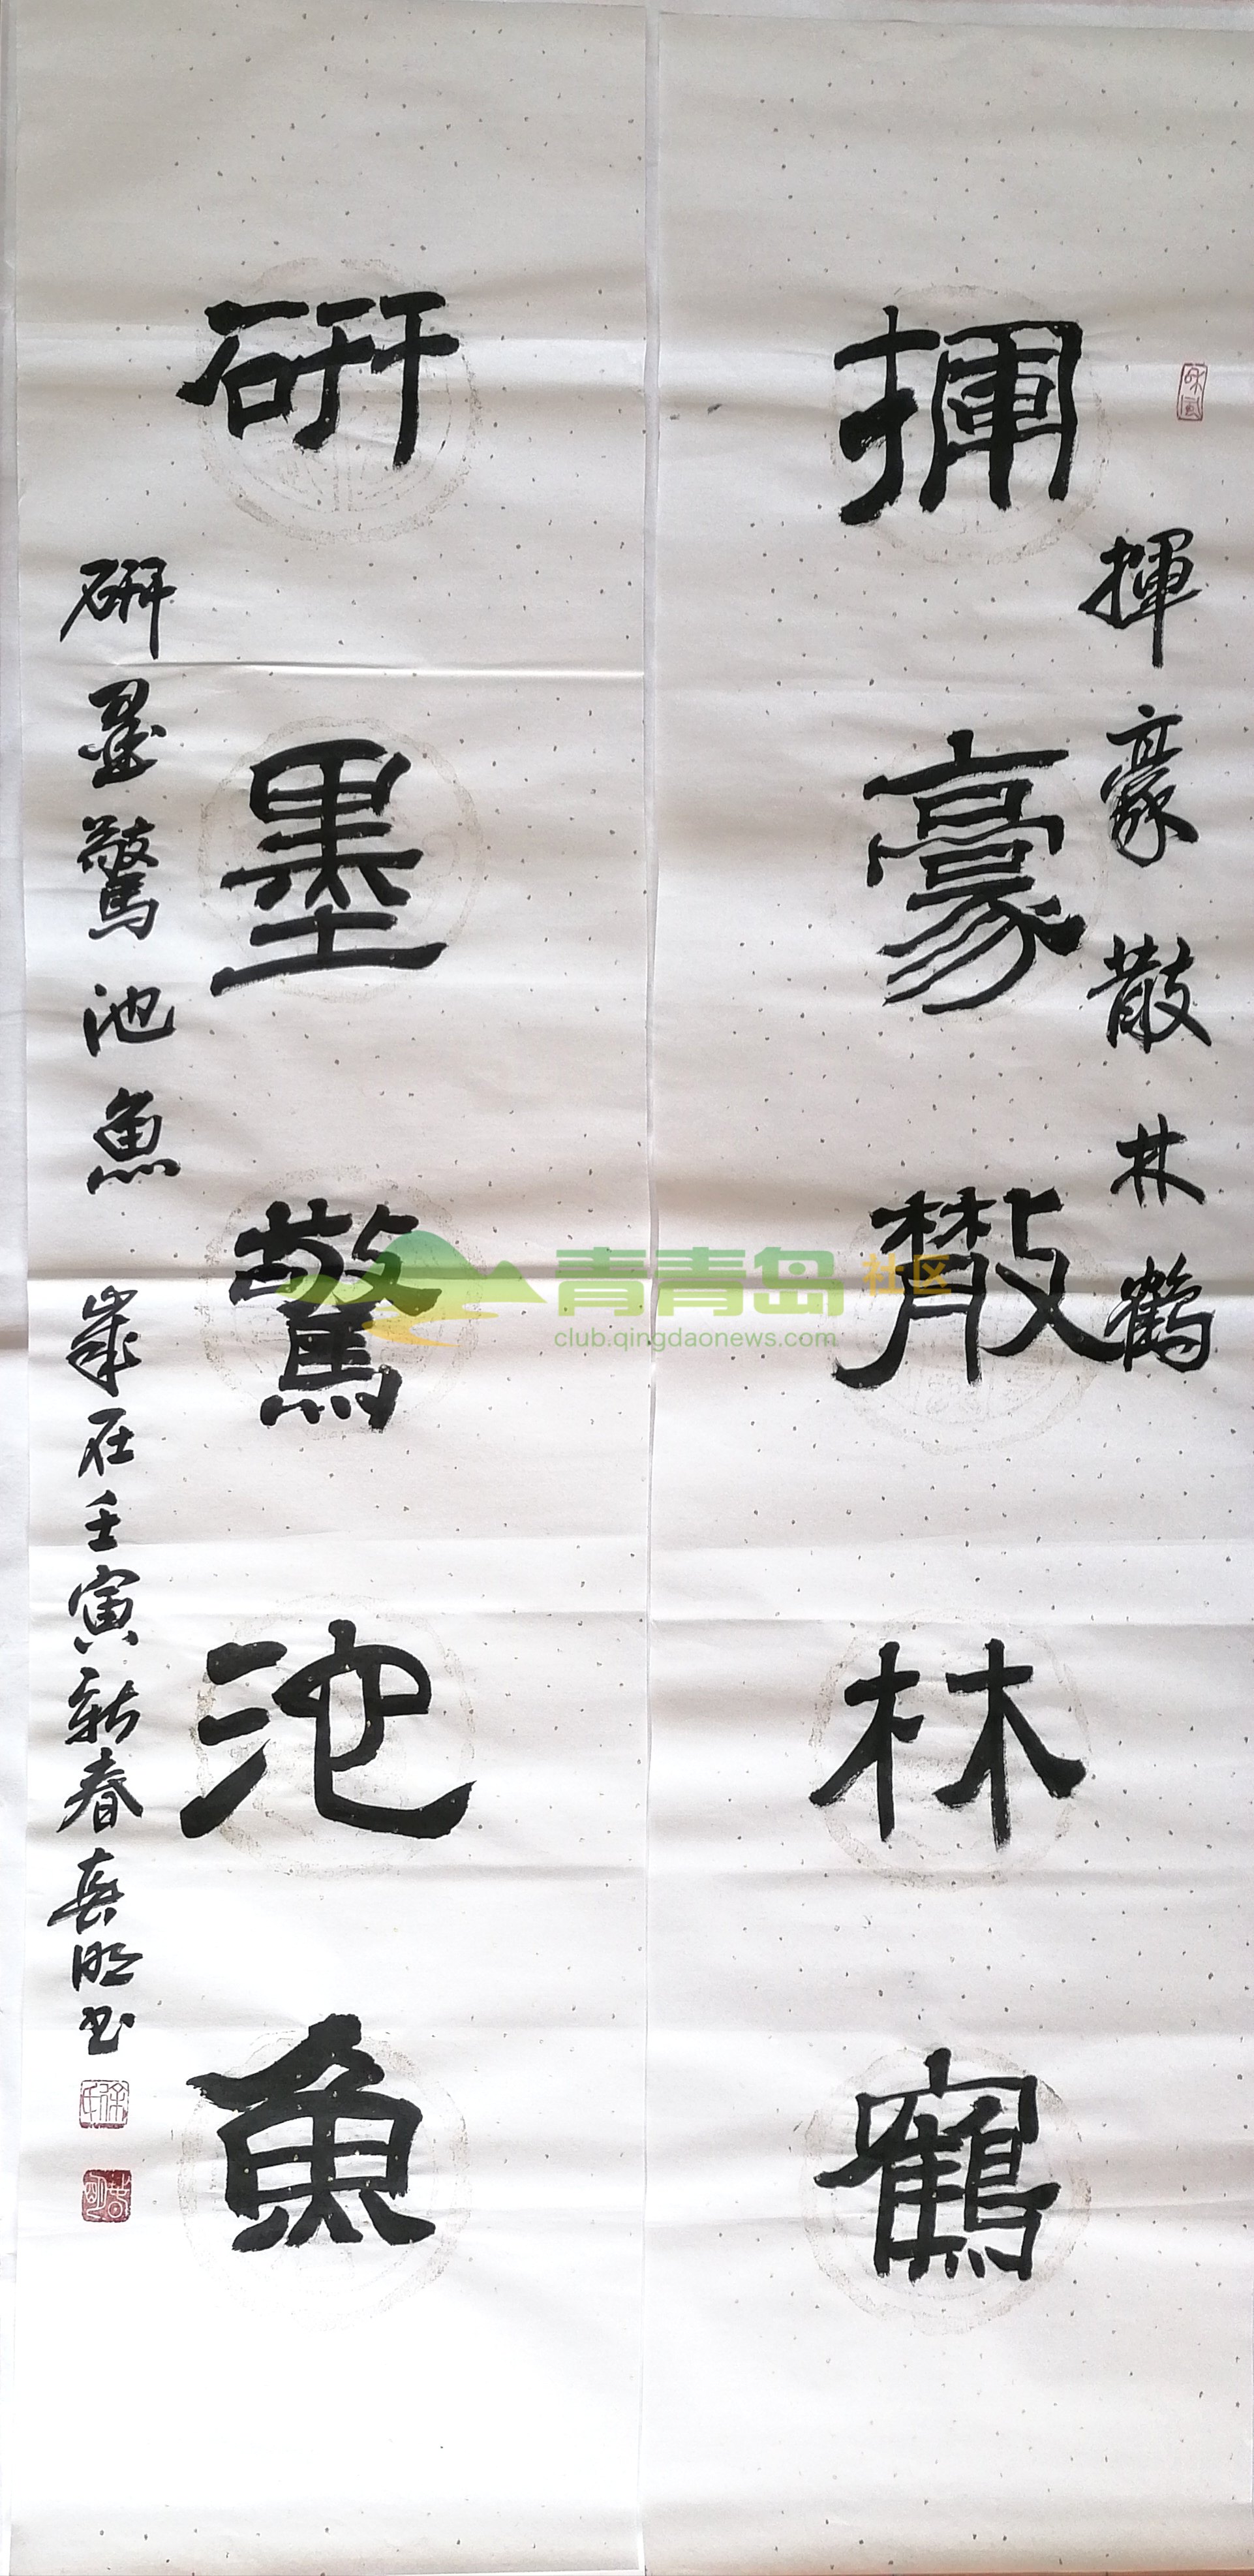 揮豪散林鶴
揮豪散林鶴
研墨驚池魚
研墨驚池魚 歲在壬寅新春喜明书
青青岛社区
club.qingdaonews.com